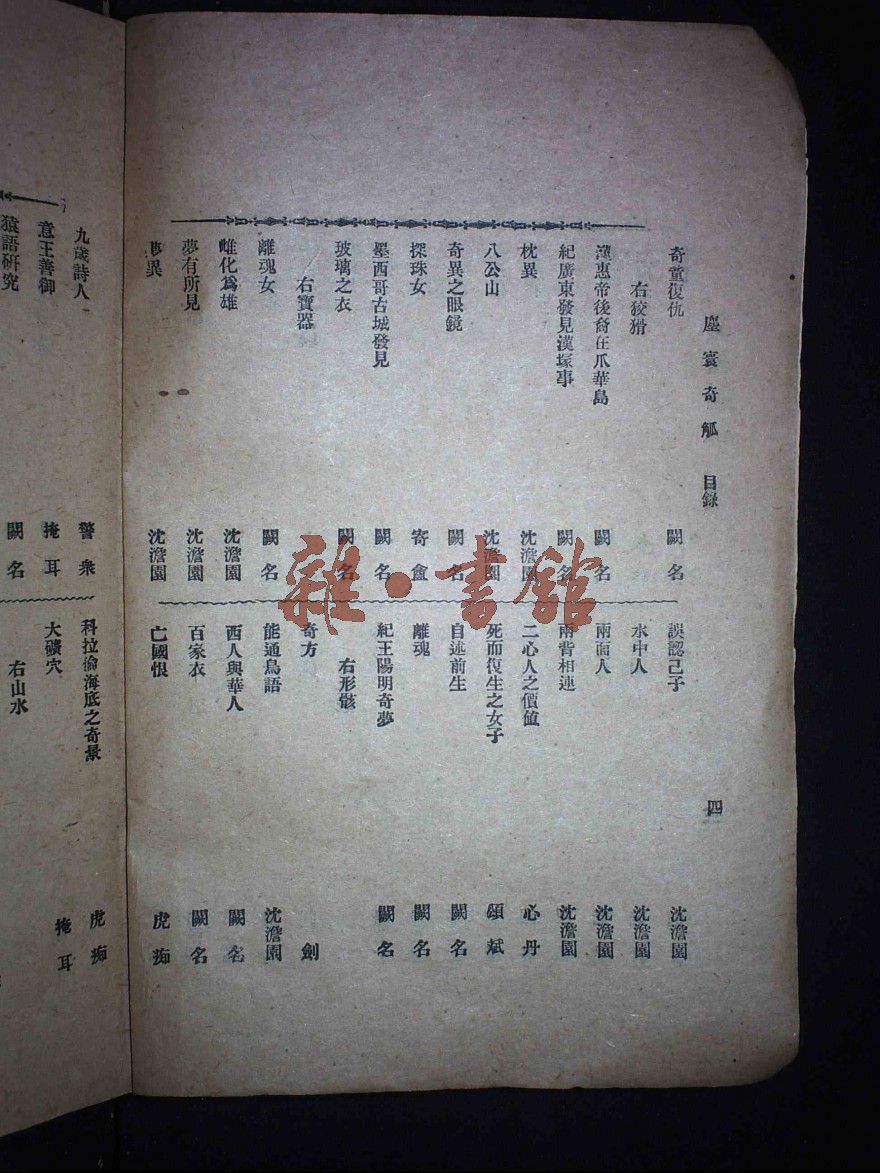 塵寰奇觚 目錄 四
奇童復仇 闕名
右狡猾
惠帝後裔在爪華島 闕名
紀廣東發見漢塚事 闕名
枕異 沈澹園
八公山 沈澹園
奇異之眼鏡 闕名
探珠女 寄盦
墨西哥古城發見 闕名
玻璃之衣 闕名
右寶器
離魂女 闕名
雌化為雄 沈澹園
夢有所見 沈澹園
夢異 沈澹園
誤認己子 沈澹園
水中人 沈澹園
兩面人 沈澹園
兩背相連 沈澹園
二心人之價值 心丹
死而復生之女子 頌斌
自述前生 闕名
離魂 闕名
紀王陽明奇夢 闕名
右形骸
奇方 劍
能通鳥語 沈澹園
西人與華人 闕名
百家衣 闕名
亡國恨 虎痴
九歲詩人 警衆
意王善御 掩耳
猿語研究 闕名
科拉倫海底之奇景 虎痴
大礦穴 掩耳
右山水
雜·書館